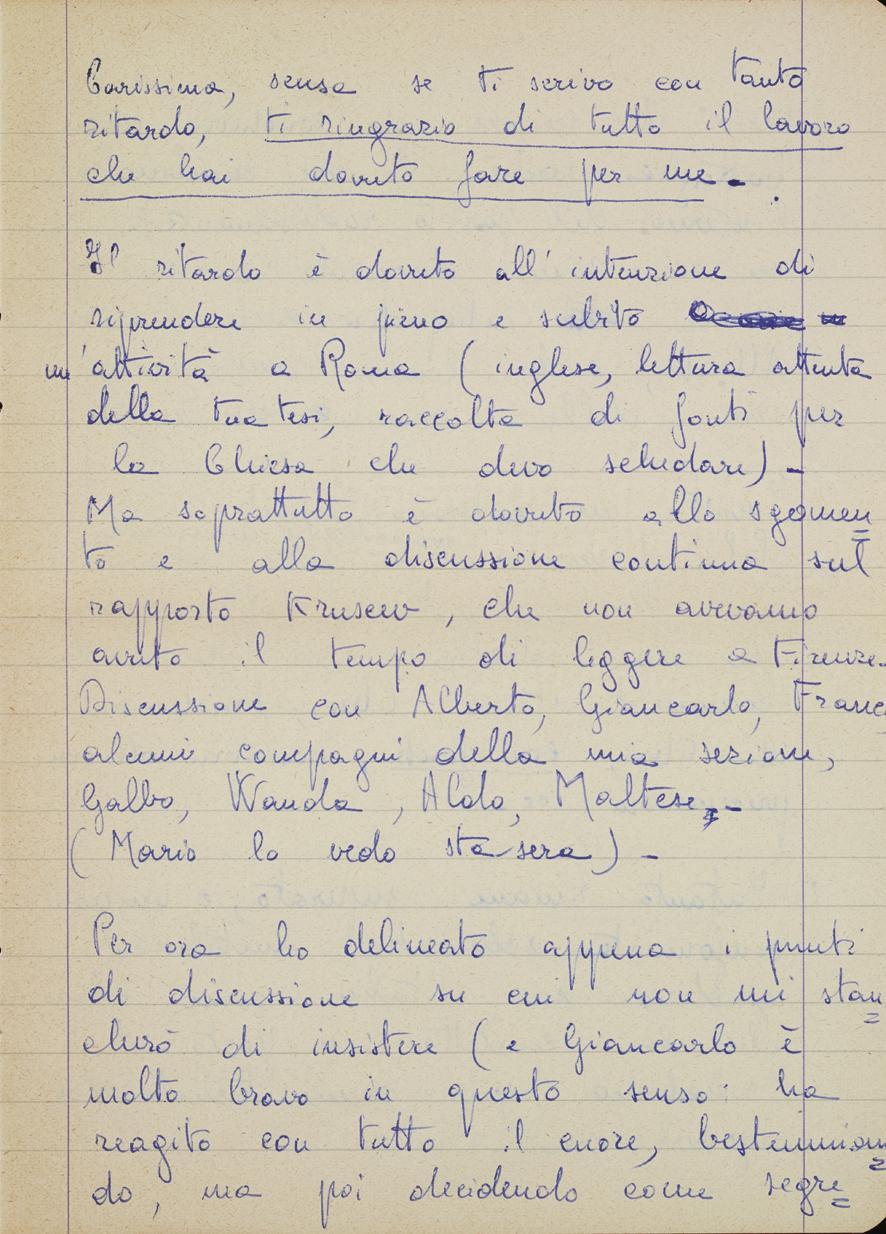 Carissima, scusa se ti scrivo con tanto
ritardo, ti ringrazio di tutto il lavoro
che hai dovuto fare per me.
Il ritardo è dovuto all'intenzione di
riprendere in pieno e subito
un'attività a Roma (inglese, lettura attenta
della tua tesi, raccolta di fonti per
la Chiesa che devo schedare) -
Ma soprattutto è dovuto allo sgomen
to e alla discussione continua sul
rapporto Kruscev, che non avevamo
avuto il tempo di leggere a Firenze.
Discussione con Alberto, Giancarlo, Franc
alcuni compagni della mia sezione,
Galbo, Wanda, Aldo, Maltese -
(Mario lo vedo sta sera) -
Per ora ho delineato appena i punti
di discussione su cui non mi stan
cherò di insistere (e Giancarlo è
molto bravo in questo senso: ha
reagito con tutto il cuore, bestemmian
do, ma poi decidendo come segre